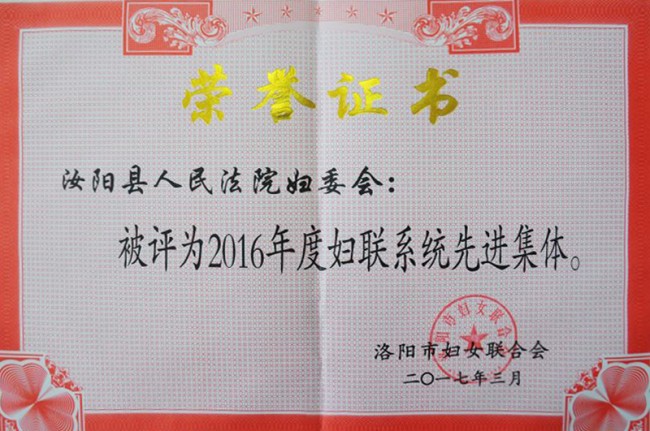 荣誉证书
汝阳县人民法院妇委会：
被评为2016年度妇联系统先进集体。
洛阳市妇女联合会
洛阳市妇女联合会
二〇一七年三月